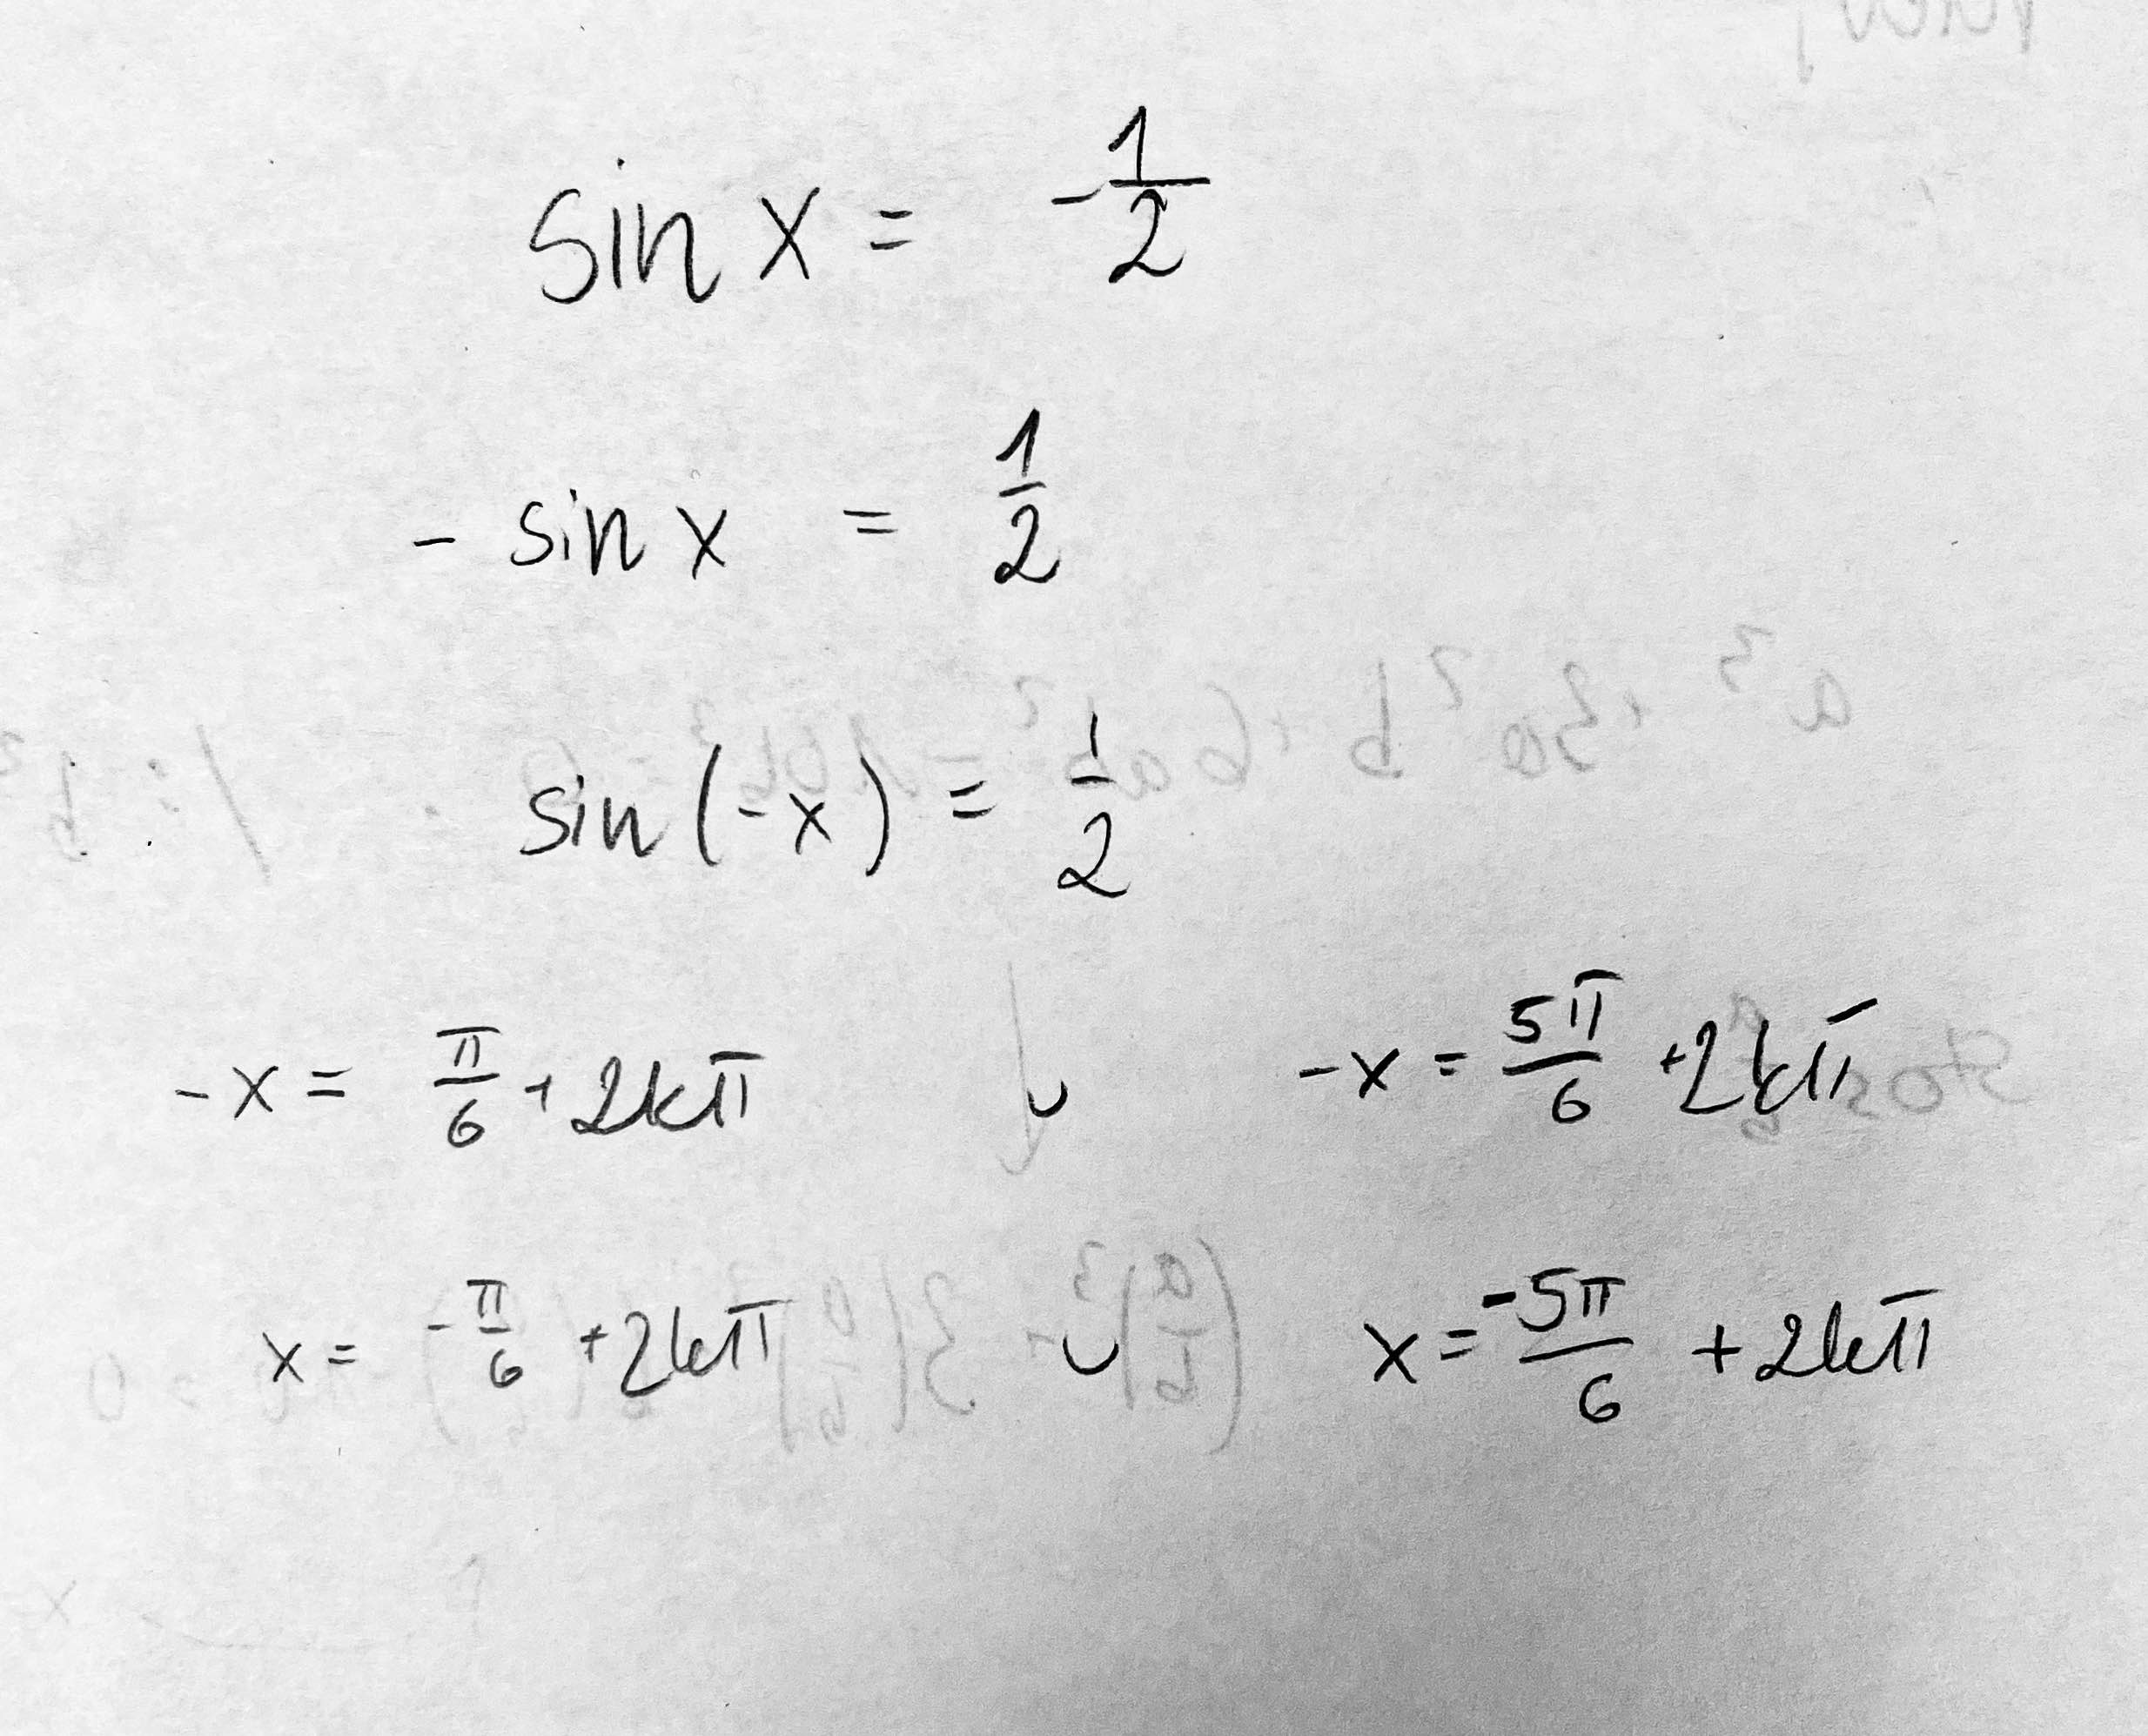 sin x = -1/2
- sin x = 1/2
sin (-x) = 1/2
-x = π/6 + 2kπ ∪ -x = 5π/6 + 2kπ
x = -π/6 + 2kπ ∪ x = -5π/6 + 2kπ